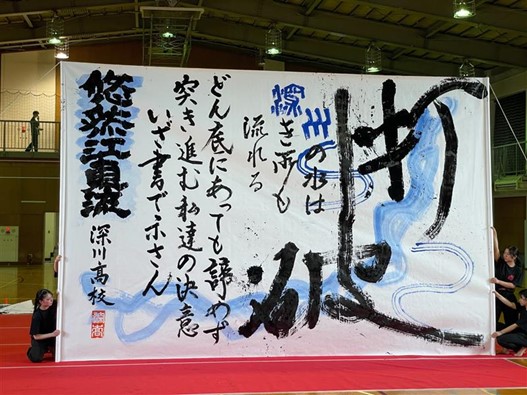 の水は
深き所も
流れる
どん底にあっても諦めず
突き進む私達の決意
いざ書で示さん
悠然江東流
深川高校